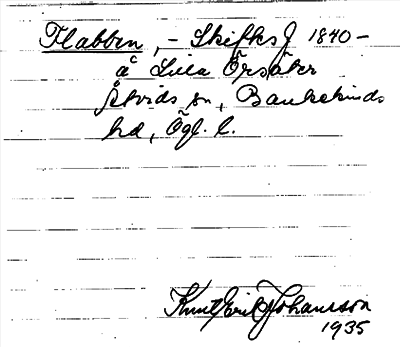 Flabben, – Skifks J 1840 –
å Lilla Örsåker
Åtvids sn, Bankekinds
hd, Ögl. l.
Knut Erik Johansson
1935